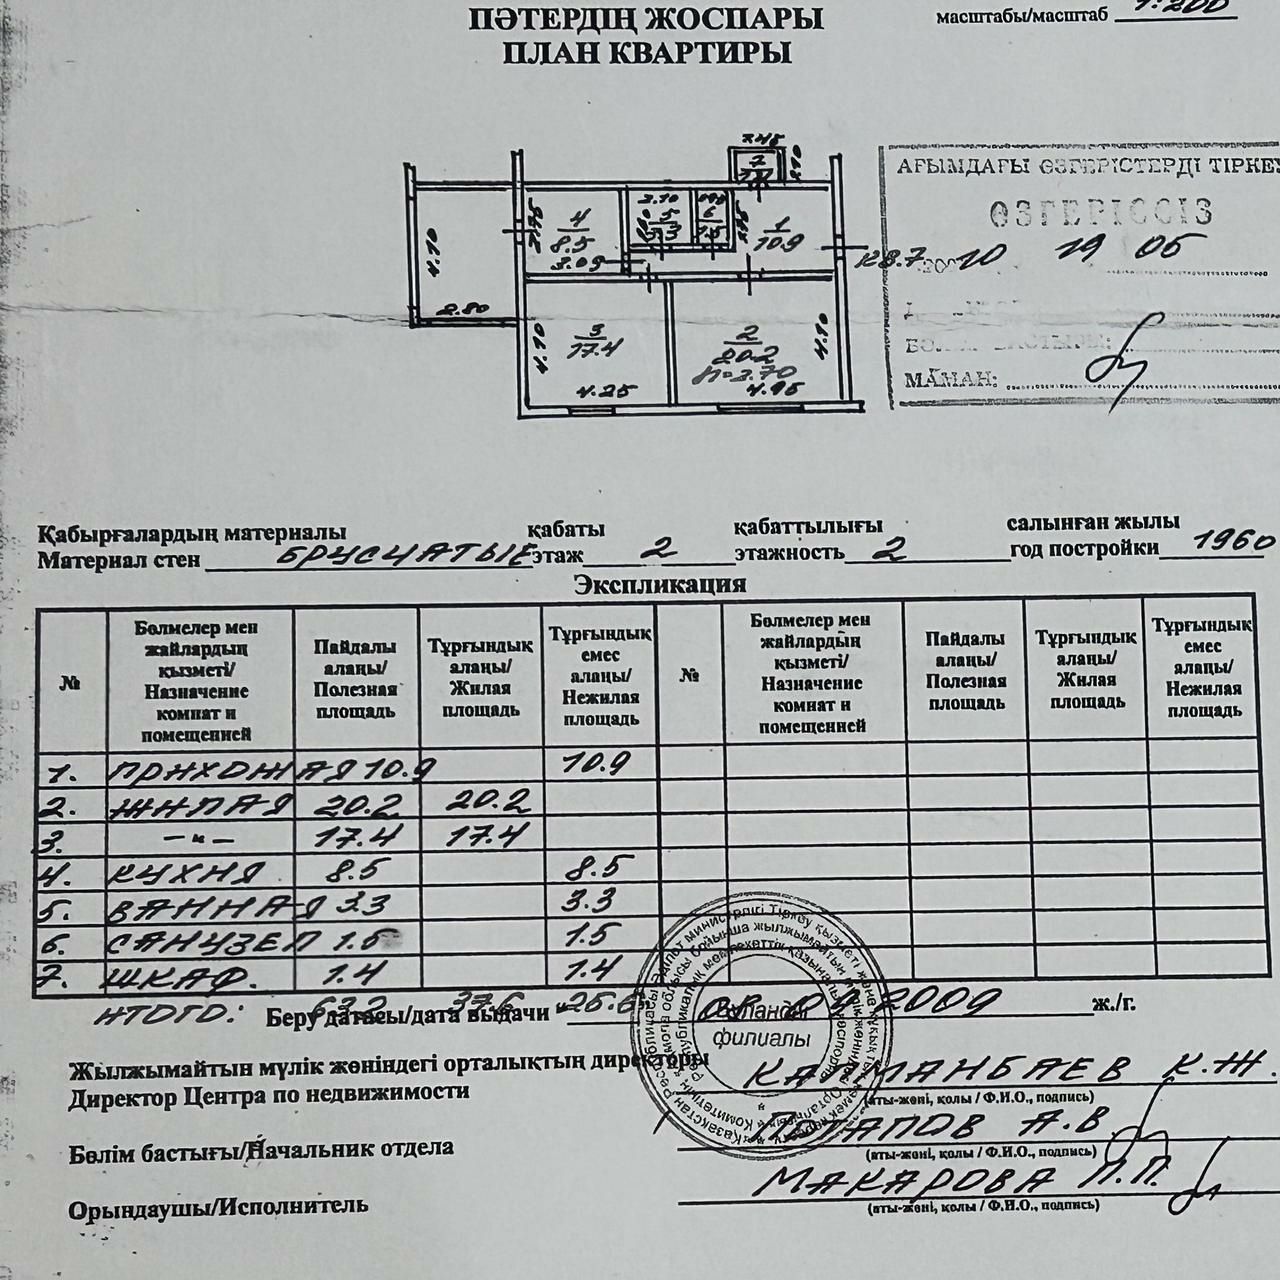 ПӘТЕРДІҢ ЖОСПАРЫ
ПЛАН КВАРТИРЫ
масштабы/масштаб 1:200
АҒЫМДАҒЫ ӨЗГЕРІСТЕРДІ ТІРКЕУ
ӨЗГЕРІССІЗ
10 19 05
МАМАН:
кв.7
2.80
4.70
4
8.5
2.75
3.09
2.10
5
3.3
6
1.5
7
1
10.9
3
17.4
4.10
4.25
2
20.2
h=3.70
4.10
4.95
Қабырғалардың материалы
Материал стен БРУСЧАТЫЕ
қабаты
этаж 2
қабаттылығы
этажность 2
салынған жылы
год постройки 1960
Экспликация
№ | Бөлмелер мен жайлардың қызметі/ Назначение комнат и помещенией | Пайдалы алаңы/ Полезная площадь | Тұрғындық алаңы/ Жилая площадь | Тұрғындық емес алаңы/ Нежилая площадь | № | Бөлмелер мен жайлардың қызметі/ Назначение комнат и помещенией | Пайдалы алаңы/ Полезная площадь | Тұрғындық алаңы/ Жилая площадь | Тұрғындық емес алаңы/ Нежилая площадь
1. ПРИХОЖАЯ 10.9 10.9
2. ЖИЛАЯ 20.2 20.2
3. —"— 17.4 17.4
4. КУХНЯ 8.5 8.5
5. ВАННАЯ 3.3 3.3
6. САНУЗЕЛ 1.5 1.5
7. ШКАФ. 1.4 1.4
ИТОГО: 63.2 37.6 25.6
Беру датасы/дата выдачи 2009 ж./г.
филиалы
Жылжымайтын мүлік жөніндегі орталықтың директоры
Директор Центра по недвижимости
К.Ж.
(аты-жөні, қолы / Ф.И.О., подпись)
Бөлім бастығы/Начальник отдела ПОТАПОВ А.В.
(аты-жөні, қолы / Ф.И.О., подпись)
Орындаушы/Исполнитель МАКАРОВА Л.П.
(аты-жөні, қолы / Ф.И.О., подпись)